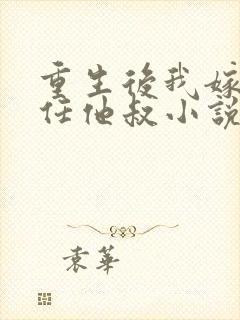 重生後我嫁
任他叔小說
袁華